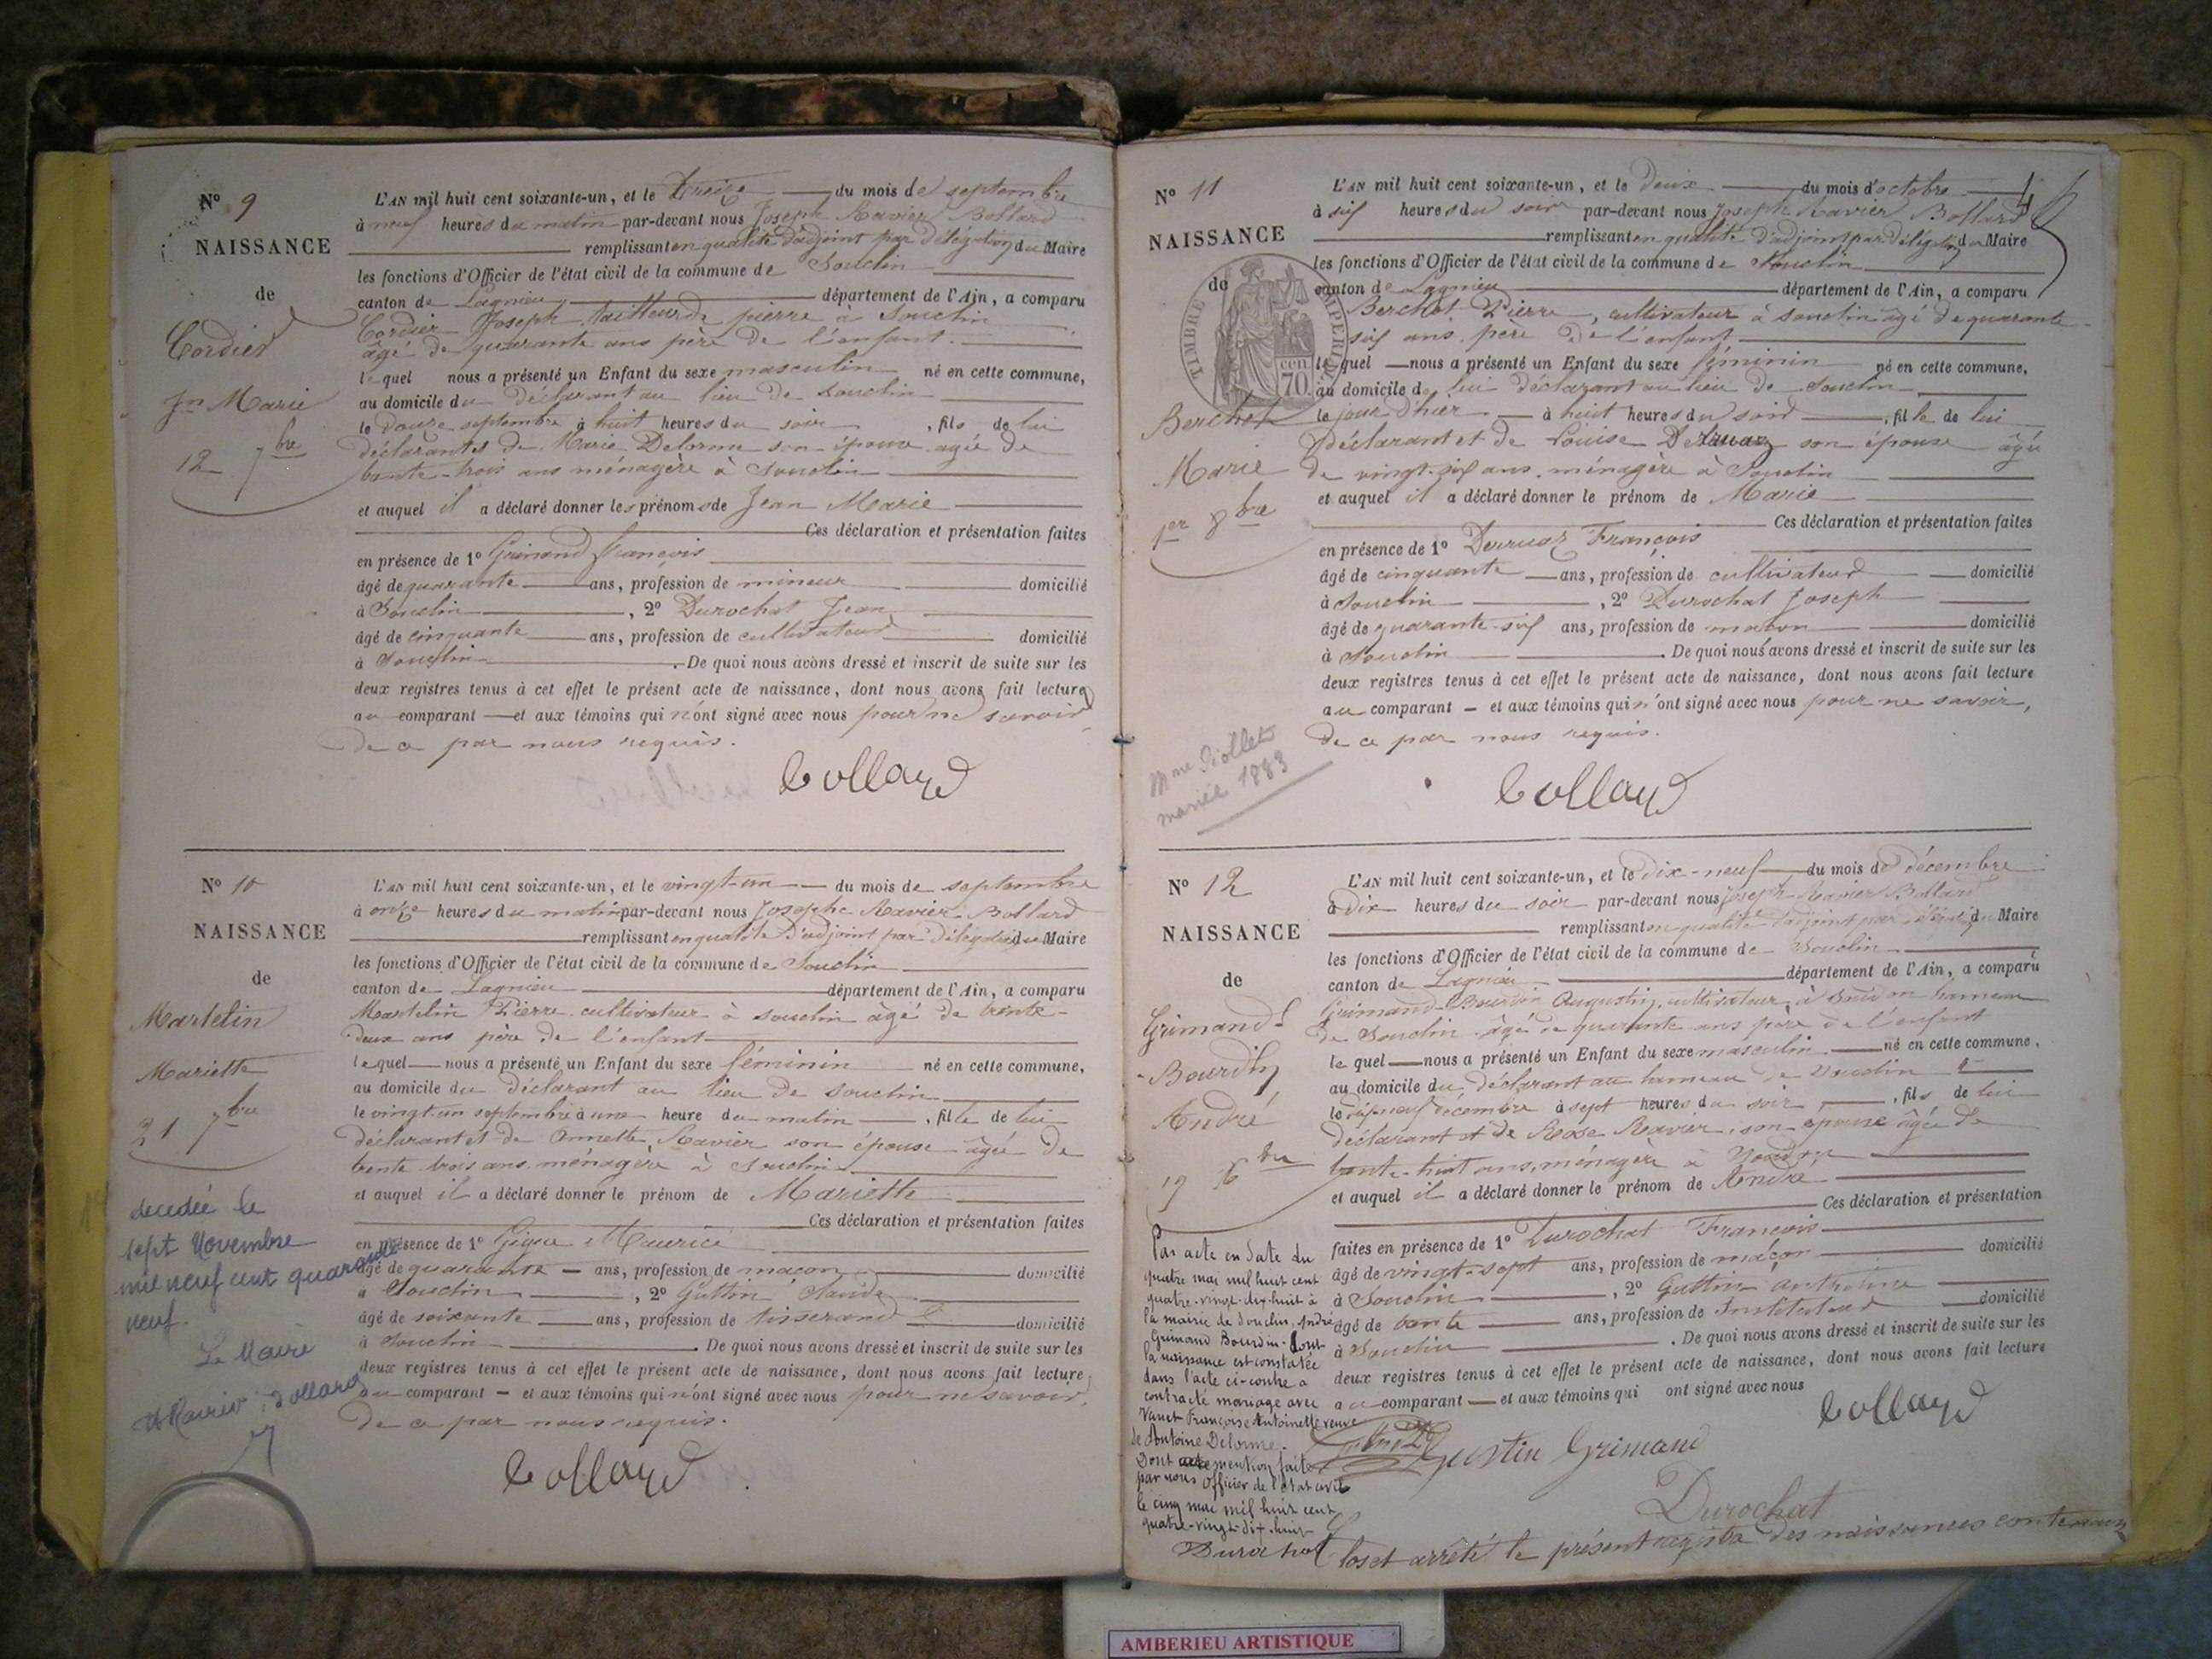 N° 9
NAISSANCE
de
Cordier
Jn Marie
12 7bre
L'AN mil huit cent soixante-un, et le treize du mois de septembre
à neuf heures du matin par-devant nous Joseph Ravier Bollard
remplissant en qualité d'adjoint par délégation du Maire
les fonctions d'Officier de l'état civil de la commune de Souclin
canton de Lagnieu département de l'Ain, a comparu
Cordier Joseph tailleur de pierre à Souclin
âgé de quarante ans père de l'enfant.
lequel nous a présenté un Enfant du sexe masculin né en cette commune,
au domicile du déclarant au lieu de Souclin
le douze septembre à huit heures du soir, fils de lui
déclarant et de Marie Delorme son épouse agée de
trente-trois ans ménagère à Souclin
et auquel il a déclaré donner les prénoms de Jean Marie
Ces déclaration et présentation faites
en présence de 1° Grimand François
âgé de quarante ans, profession de mineur domicilié
à Souclin, 2° Durochat Jean
âgé de cinquante ans, profession de cultivateur domicilié
à Souclin. De quoi nous avons dressé et inscrit de suite sur les
deux registres tenus à cet effet le présent acte de naissance, dont nous avons fait lecture
au comparant et aux témoins qui n'ont signé avec nous pour ne savoir
de ce par nous requis.
Bollard
N° 10
NAISSANCE
de
Martelin
Mariette
21 7bre
decedée le
sept Novembre
mil neuf cent quarante
neuf.
Le Maire
L'AN mil huit cent soixante-un, et le vingt-un du mois de septembre
à onze heures du matin par-devant nous Joseph Ravier Bollard
remplissant en qualité d'adjoint par délégation du Maire
les fonctions d'Officier de l'état civil de la commune de Souclin
canton de Lagnieu département de l'Ain, a comparu
Martelin Pierre cultivateur à Souclin âgé de trente-
deux ans père de l'enfant
lequel nous a présenté un Enfant du sexe féminin né en cette commune,
au domicile du déclarant au lieu de Souclin
le vingt un septembre à une heure du matin, fille de lui
déclarant et de Annette Ravier son épouse âgée de
trente trois ans ménagère à Souclin
et auquel il a déclaré donner le prénom de Mariette
Ces déclaration et présentation faites
en présence de 1° Maurice
âgé de quarante ans, profession de maçon domicilié
à Souclin, 2° Guttin Claude
âgé de soixante ans, profession de tisserand domicilié
à Souclin. De quoi nous avons dressé et inscrit de suite sur les
deux registres tenus à cet effet le présent acte de naissance, dont nous avons fait lecture
au comparant et aux témoins qui n'ont signé avec nous pour ne savoir,
de ce par nous requis.
Bollard
N° 11
NAISSANCE
de
TIMBRE IMPERIAL
70 cen
Berchet
Marie
1er 8bre
Mme Piollet
mariée 1883
L'AN mil huit cent soixante-un, et le deux du mois d'octobre
à six heures du soir par-devant nous Joseph Ravier Bollard
remplissant en qualité d'adjoint par délégation du Maire
les fonctions d'Officier de l'état civil de la commune de Souclin
canton de Lagnieu département de l'Ain, a comparu
Berchet Pierre, cultivateur à Souclin âgé de quarante-
six ans père de l'enfant
lequel nous a présenté un Enfant du sexe féminin né en cette commune,
au domicile de lui déclarant au lieu de Souclin
le jour d'hier à huit heures du soir, fille de lui
déclarant et de Louise son épouse âgé
de vingt-six ans ménagère à Souclin
et auquel il a déclaré donner le prénom de Marie
Ces déclaration et présentation faites
en présence de 1° Derruaz François
âgé de cinquante ans, profession de cultivateur domicilié
à Souclin, 2° Durochat Joseph
âgé de quarante-six ans, profession de maçon domicilié
à Souclin. De quoi nous avons dressé et inscrit de suite sur les
deux registres tenus à cet effet le présent acte de naissance, dont nous avons fait lecture
au comparant et aux témoins qui n'ont signé avec nous pour ne savoir,
de ce par nous requis.
Bollard
N° 12
NAISSANCE
de
Grimand
Bourdin
André
19 Xbre
Par acte en date du
quatre mai mil huit cent
quatre-vingt-dix-huit à
la mairie de Souclin, André
Grimand Bourdin dont
la naissance est constatée
dans l'acte ci-contre a
contracté mariage avec
Vanet Françoise Antoinette veuve
de Antoine Delorme.
Dont mention faite
par nous Officier de l'état civil
le cinq mai mil huit cent
quatre-vingt-dix-huit
Durochat
L'AN mil huit cent soixante-un, et le dix-neuf du mois de décembre
à dix heures du soir par-devant nous Joseph Ravier Bollard
remplissant en qualité d'adjoint par délégation du Maire
les fonctions d'Officier de l'état civil de la commune de Souclin
canton de Lagnieu département de l'Ain, a comparu
Grimand-Bourdin Augustin, cultivateur à hameau
de Souclin âgé de quarante ans père de l'enfant
lequel nous a présenté un Enfant du sexe masculin né en cette commune,
au domicile du déclarant au hameau de
le dix neuf décembre à sept heures du soir, fils de lui
déclarant et de Rose Ravier, son épouse âgée de
trente-huit ans, ménagère à
et auquel il a déclaré donner le prénom de André
Ces déclaration et présentation
faites en présence de 1° Durochat François
âgé de vingt-sept ans, profession de maçon domicilié
à Souclin, 2° Guttin Anthelme
âgé de trente ans, profession de Instituteur domicilié
à Souclin. De quoi nous avons dressé et inscrit de suite sur les
deux registres tenus à cet effet le présent acte de naissance, dont nous avons fait lecture
au comparant et aux témoins qui ont signé avec nous
Bollard
Gustin Grimand
Durochat
Clos et arrêté le présent registre des naissances contenant
AMBERIEU ARTISTIQUE